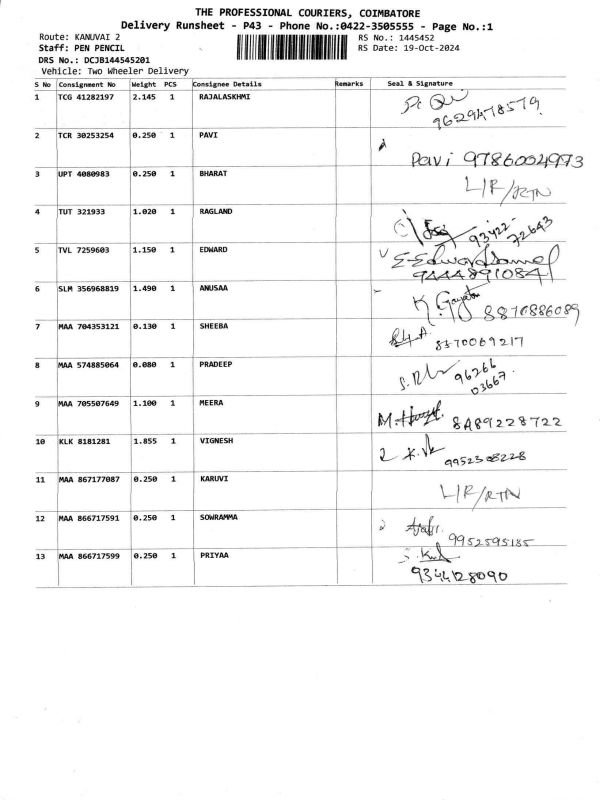 THE PROFESSIONAL COURIERS, COIMBATORE
Delivery Runsheet - P43 - Phone No.:0422-3505555 - Page No.:1
Route: KANUVAI 2 RS No.: 1445452
Staff: PEN PENCIL RS Date: 19-Oct-2024
DRS No.: DCJB144545201
Vehicle: Two Wheeler Delivery
S No Consignment No Weight PCS Consignee Details Remarks Seal & Signature
1 TCG 41282197 2.145 1 RAJALASKHMI
9629478579
2 TCR 30253254 0.250 1 PAVI
Pavi 9786004973
3 UPT 4080983 0.250 1 BHARAT L/R/RTN
4 TUT 321933 1.020 1 RAGLAND
93422-
72643
5 TVL 7259603 1.150 1 EDWARD
9444891084
6 SLM 356968819 1.490 1 ANUSAA
K. Gayatri 8870886089
7 MAA 704353121 0.130 1 SHEEBA
8370069217
8 MAA 574885064 0.080 1 PRADEEP
96266
03667.
9 MAA 705507649 1.100 1 MEERA
8489228722
10 KLK 8181281 1.855 1 VIGNESH
9952308228
11 MAA 867177087 0.250 1 KARUVI L/R/RTN
12 MAA 866717591 0.250 1 SOWRAMMA
9952595185
13 MAA 866717599 0.250 1 PRIYAA
9344128090